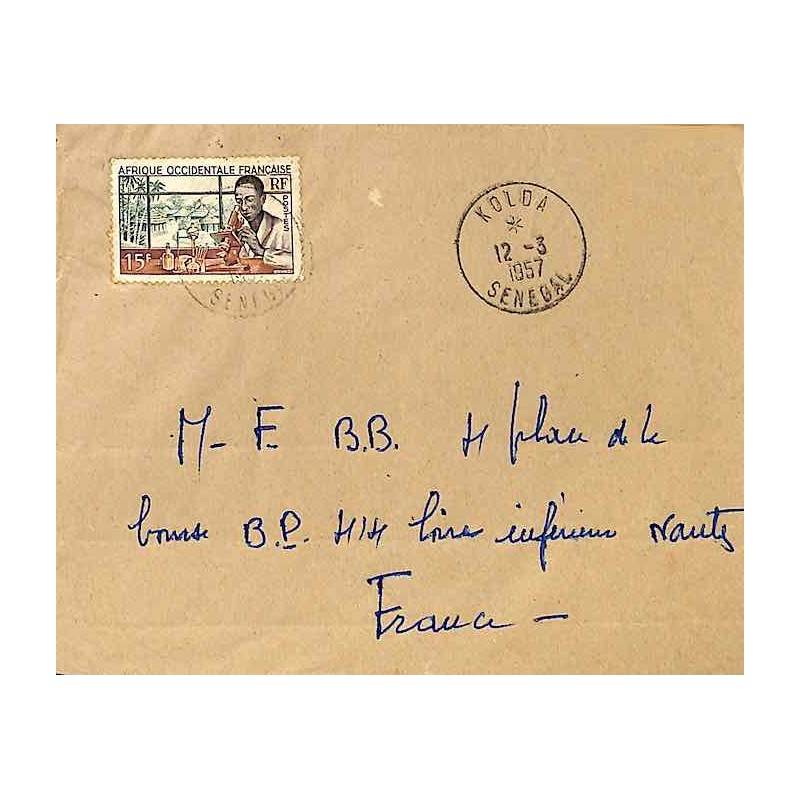 AFRIQUE OCCIDENTALE FRANÇAISE
RF
POSTES
15F
SENEG
KOLDA
12 -3
1957
SENEGAL
M- F. B.B. 4 place de la
bourse B.P. 414 Loire inférieure Nantes
France -